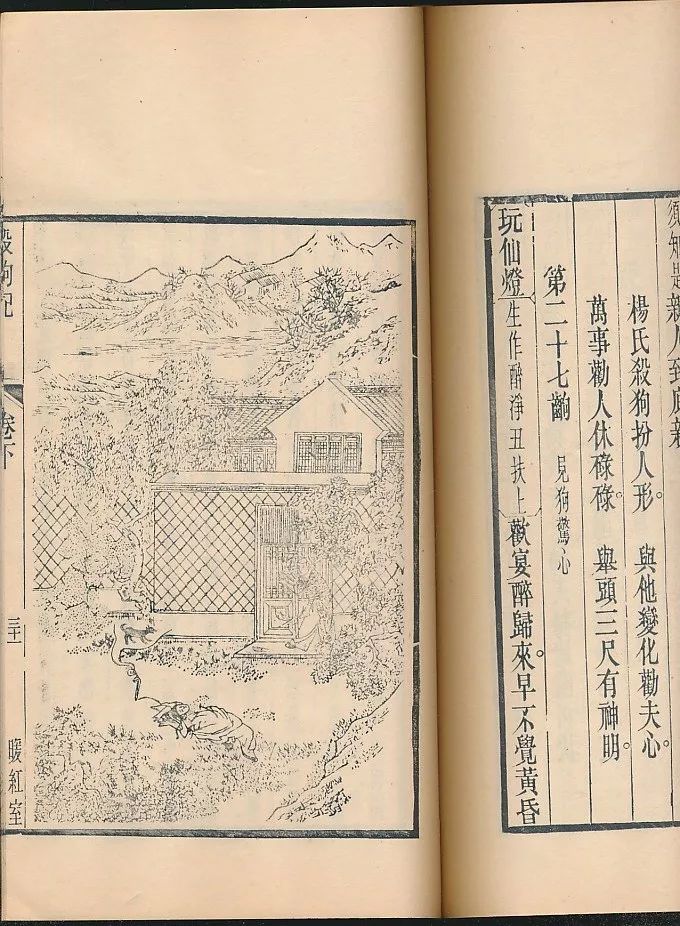 須知是親人到底親
楊氏殺狗扮人形。 與他變化勸夫心。
萬事勸人休碌碌。 舉頭三尺有神明。
第二十七齣 見狗驚心
玩仙燈 生作醉淨丑扶上 歡宴醉歸來。早不覺黃昏
殺狗記 卷下 三十一 暖紅室